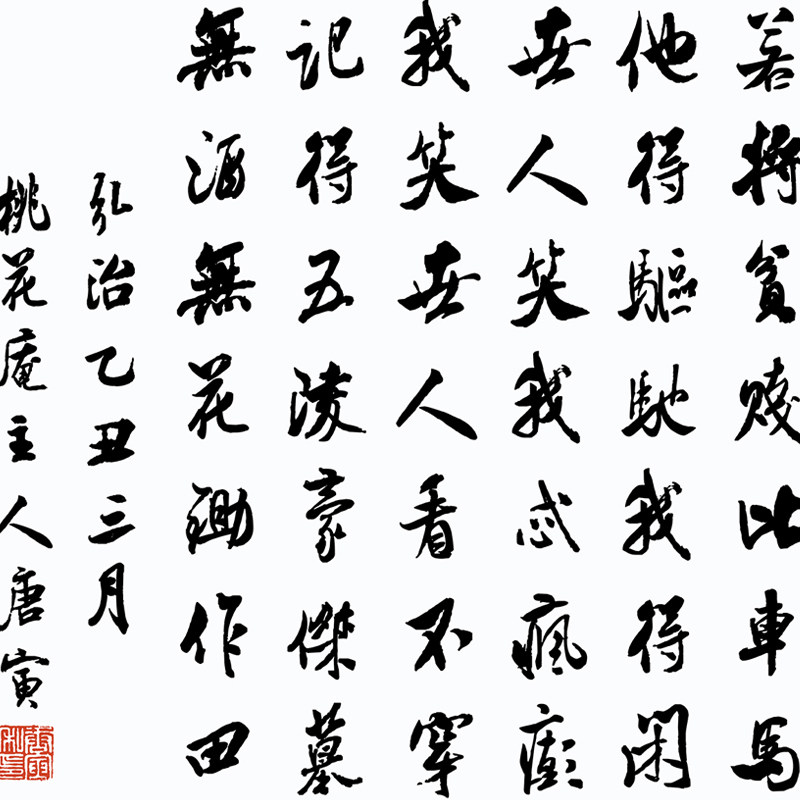 若將貧賤比車馬
他得驅馳我得閑
世人笑我忒瘋癲
我笑世人看不穿
記得五陵豪傑墓
無酒無花鋤作田
弘治乙丑三月
桃花庵主人唐寅